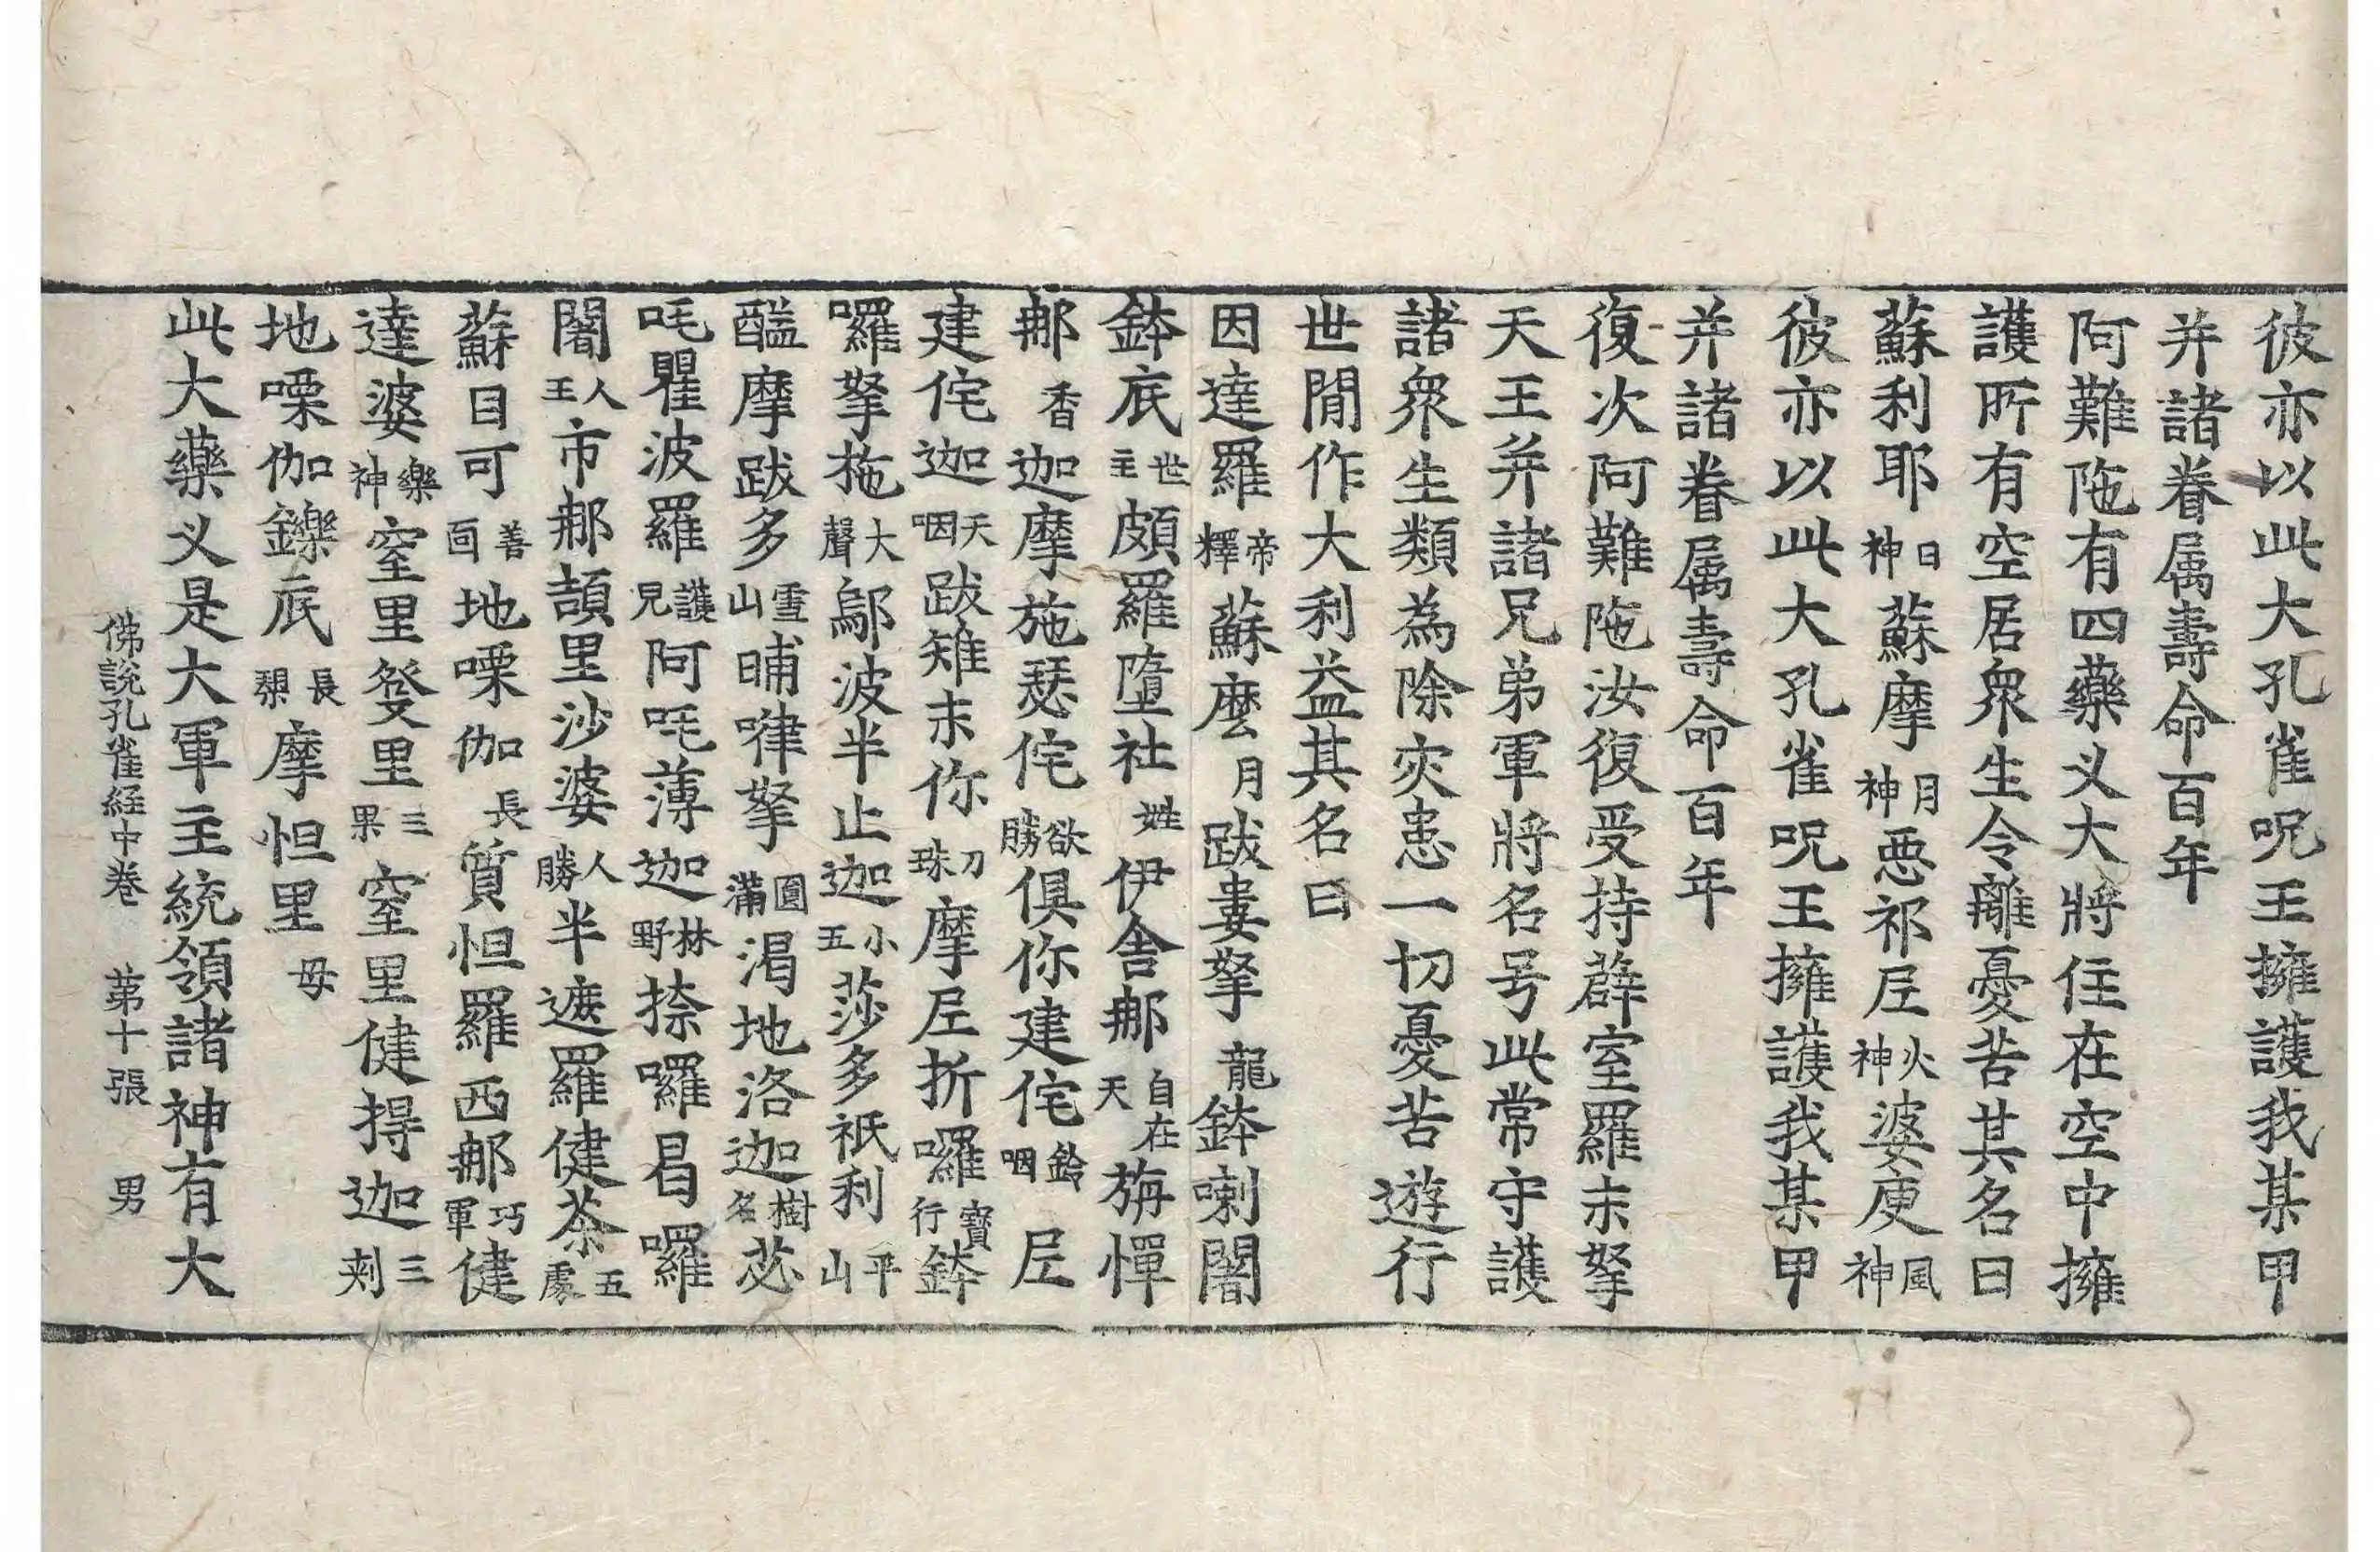 彼亦以此大孔雀呪王擁護我某甲
并諸眷属壽命百年
阿難陁有四藥叉大將住在空中擁
護所有空居衆生令離憂苦其名曰
蘇利耶日神蘇摩月神惡祁尼火神婆庾風神
彼亦以此大孔雀呪王擁護我某甲
并諸眷属壽命百年
復次阿難陁汝復受持薜室羅末拏
天王并諸兄弟軍將名号此常守護
諸衆生類為除灾患一切憂苦遊行
世間作大利益其名曰
因達羅帝釋蘇麽月跋婁拏龍鉢喇闍
鉢底世主頗羅墮社姓伊舍那自在天旃憚
那香迦摩施瑟侘欲勝俱你建侘鈴咽尼
建侘迦天咽跋雉末你刀珠摩尼折囉寶行鉢
囉拏拖大聲鄔波半止迦小五莎多祇利平山
醯摩跋多雪山晡嘩拏圓滿渴地洛迦樹名苾
吒瞿波羅護兒阿吒薄迦林野捺囉曷囉
闍人王市那頡里沙婆人勝半遮羅健荼五處
蘇目可善面地㗚伽長質怛羅西那巧軍健
達婆樂神窒里發里三果窒里健㝵迦三刺
地㗚伽鑠底長槊摩怛里母
此大藥叉是大軍主統領諸神有大
佛説孔雀経中卷 苐十張 男